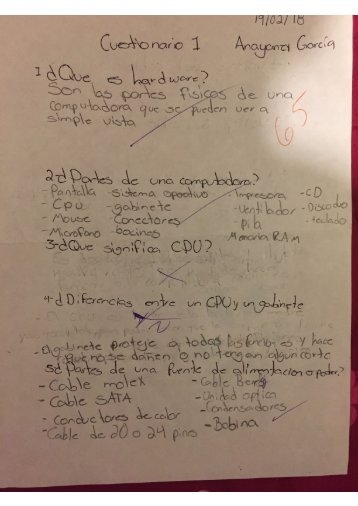 19/02/18
Cuestionario 1 Anayanzi García
65
1 ¿Que es hardware?
Son las partes fisicas de una
computadora que se pueden ver a
simple vista
2-¿Partes de una computadora?
-Pantalla -sistema operativo -Impresora -CD
-Cpu -gabinete -Ventilador -Disco duro
-Mouse -Conectores -Pila -teclado
-Microfono -bocinas Memoria RAM
3-¿Que significa CPU?
4-¿Diferencias entre un CPU y un gabinete
-El gabinete proteje a todas las funciones y hace
que no se dañen o no tengan algun corte
5¿Partes de una fuente de alimentacion o poder?
-Cable molex -Cable Berg
-Cable SATA -Unidad optica
-Conductores de color -Condensadores
-Cable de 20 o 24 pins -Bobina